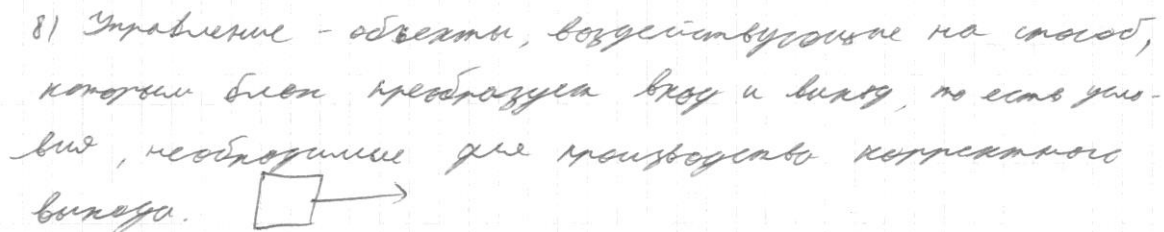 8) Управление - объекты, воздействующие на способ,
которым блок преобразует вход и выход, то есть усло-
вия, необходимые для производства корректного
выхода.